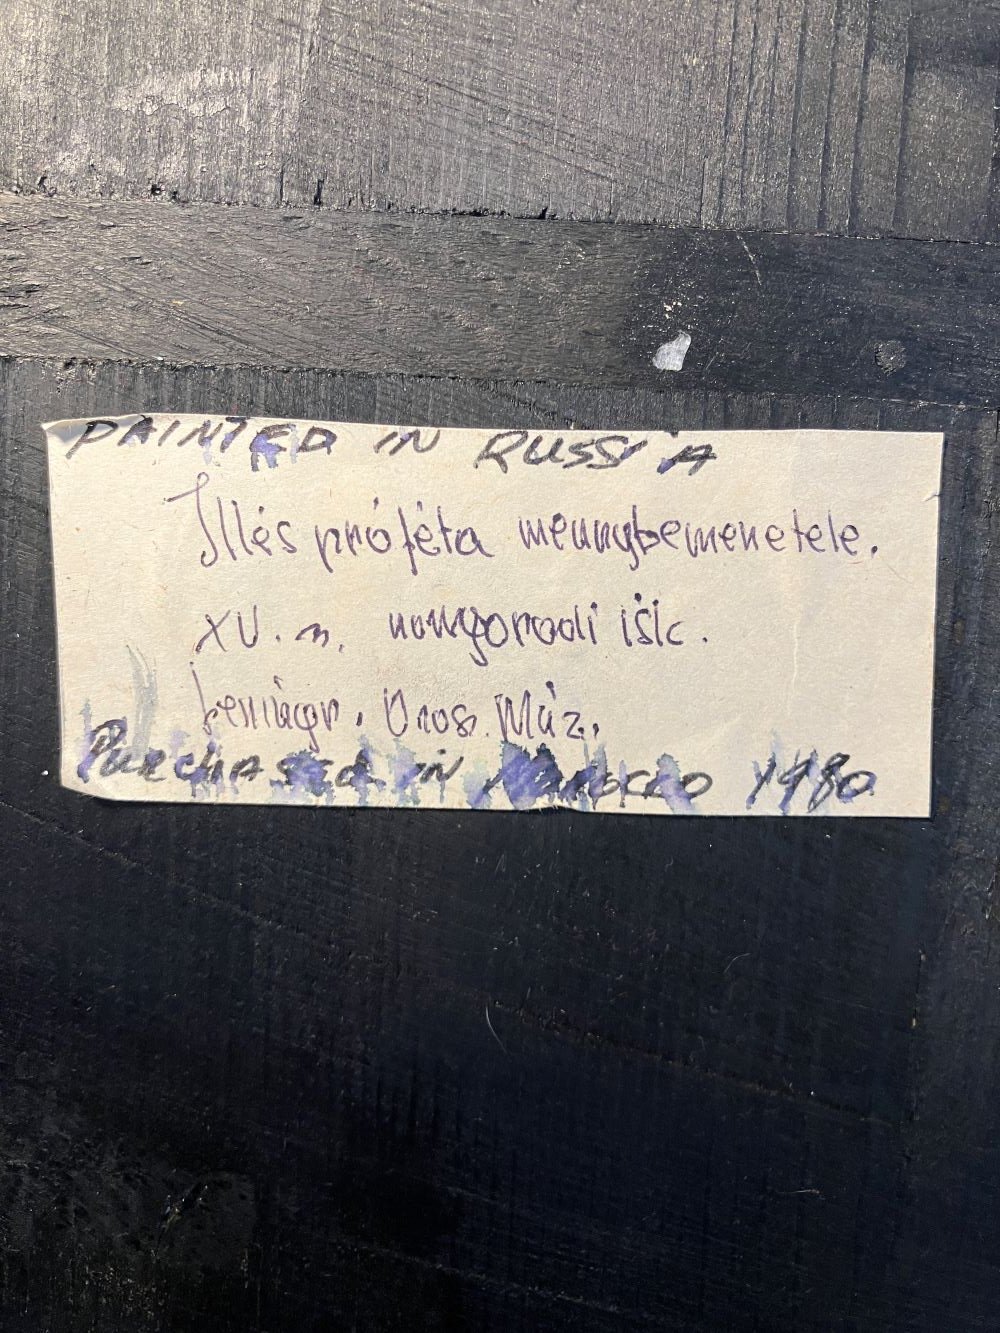 PAINTED IN RUSSIA
Illés próféta mennybemenetele.
XV. sz. novgorodi isk.
Leningr. Orosz Múz.
PURCHASED IN MOROCCO 1980